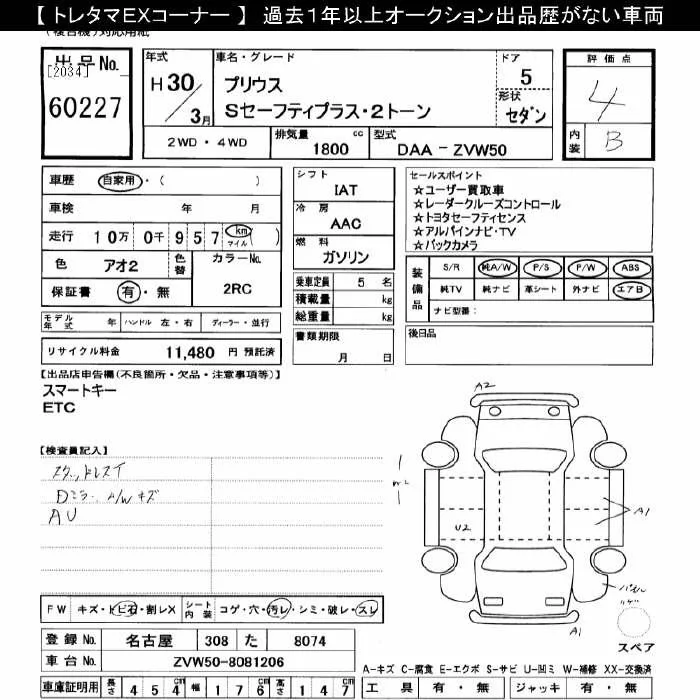 【 トレタマEXコーナー 】 過去1年以上オークション出品歴がない車両
出品No.
[2034]
60227
年式
H 30 / 3月
車名・グレード
プリウス
Sセーフティプラス・2トーン
ドア
5
形状
セダン
2WD ・ 4WD
排気量
1800 cc
型式
DAA - ZVW50
評価点
4
内装
B
車歴 自家用・( )
車検 年 月
走行 10万 0千 957 km マイル ( )
色 アオ2
色替
カラーNo.
2RC
保証書 有・無
モデル年式 年 ハンドル 左・右 ディーラー・並行
リサイクル料金 11,480 円 預託済
シフト
IAT
冷房
AAC
燃料
ガソリン
乗車定員 5 名
積載量 kg
総重量 kg
書類期限
月 日
セールスポイント
☆ユーザー買取車
☆レーダークルーズコントロール
☆トヨタセーフティセンス
☆アルパインナビ・TV
☆バックカメラ
装備品
S/R 純A/W P/S P/W ABS
純TV 純ナビ 革シート 外ナビ エアB
ナビ型番:
後日品
【出品店申告欄(不良箇所・欠品・注意事項等)】
スマートキー
ETC
【検査員記入】
Dミラー A/W キズ
AU
A2
U2
A1
A1
スペア
FW キズ・トビ石・割レX
シート内装 コゲ・穴・汚レ・シミ・破レ・スレ
登録No. 名古屋 308 た 8074
車台No. ZVW50-8081206
車庫証明用 長さ 454 cm 幅 176 cm 高さ 147 cm
A-キズ C-腐食 E-エクボ S-サビ U-凹ミ W-補修 XX-交換済
工具 有・無 ジャッキ 有・無